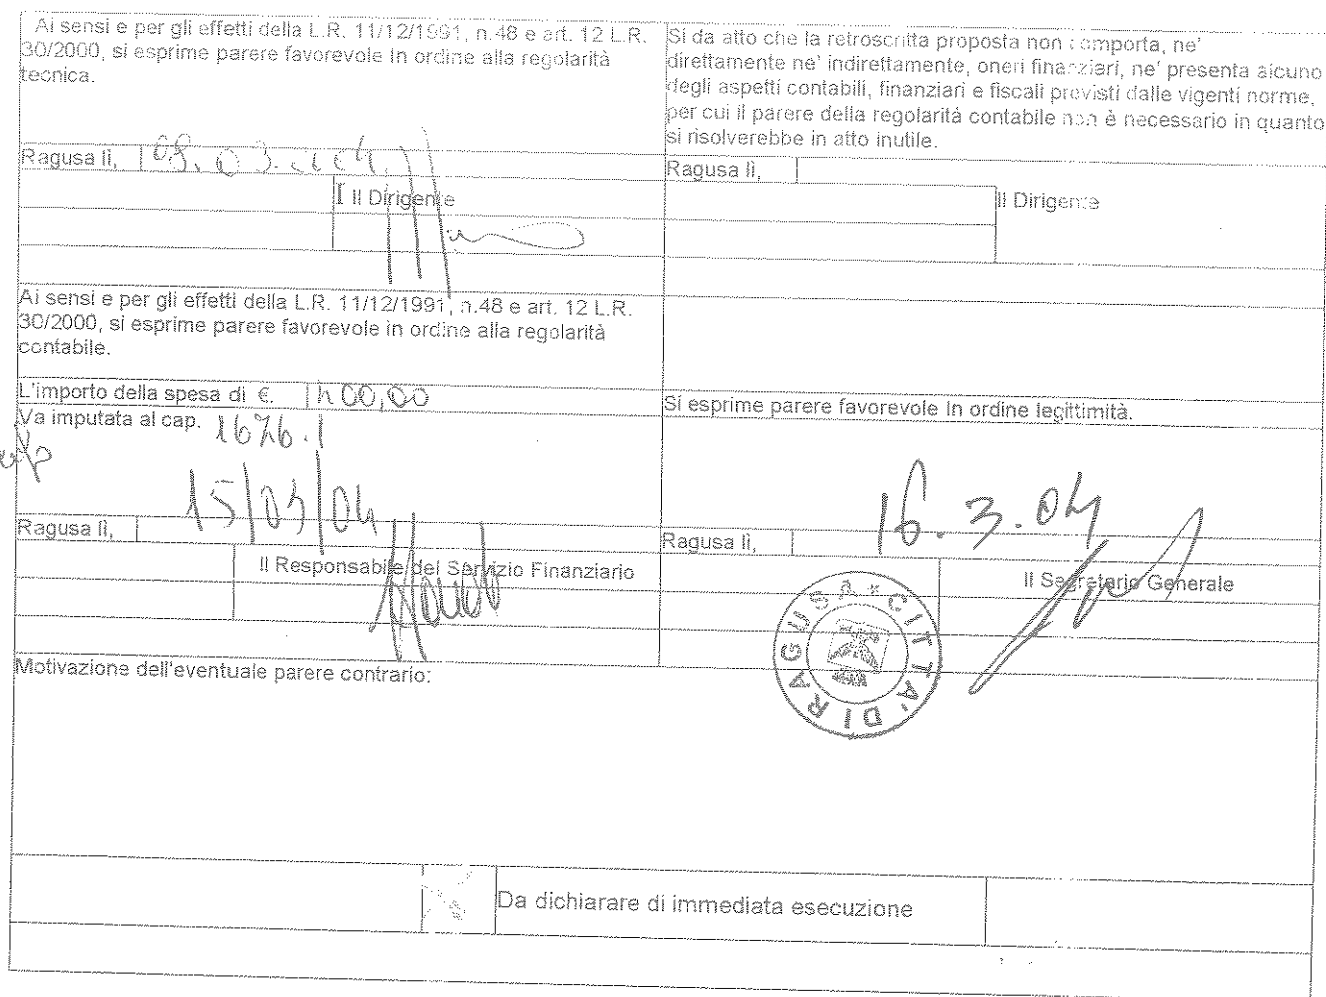 Ai sensi e per gli effetti della L.R. 11/12/1991, n.48 e art. 12 L.R.
30/2000, si esprime parere favorevole in ordine alla regolarità
tecnica.
Ragusa lì, 08.03.
Il Dirigente
Si da atto che la retroscritta proposta non comporta, ne'
direttamente ne' indirettamente, oneri finanziari, ne' presenta alcuno
degli aspetti contabili, finanziari e fiscali previsti dalle vigenti norme,
per cui il parere della regolarità contabile non è necessario in quanto
si risolverebbe in atto inutile.
Ragusa lì,
Il Dirigente
Ai sensi e per gli effetti della L.R. 11/12/1991, n.48 e art. 12 L.R.
30/2000, si esprime parere favorevole in ordine alla regolarità
contabile.
L'importo della spesa di €. 00,00
Va imputata al cap. 1676.1
15/03/04
Ragusa lì,
Il Responsabile del Servizio Finanziario
Si esprime parere favorevole in ordine legittimità.
16.3.04
Ragusa lì,
Il Segretario Generale
CITTA' DI RAGUSA
Motivazione dell'eventuale parere contrario:
Da dichiarare di immediata esecuzione